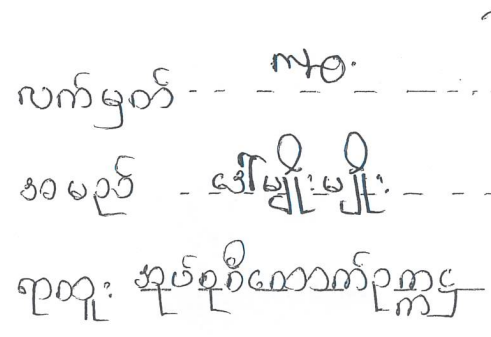 လက်မှတ် - - - - - - -
အမည် - ဒေါ်မျိုးမျိုး - -
ရာထူး အုပ်စုစီထောက်ဥက္ကဋ္ဌ